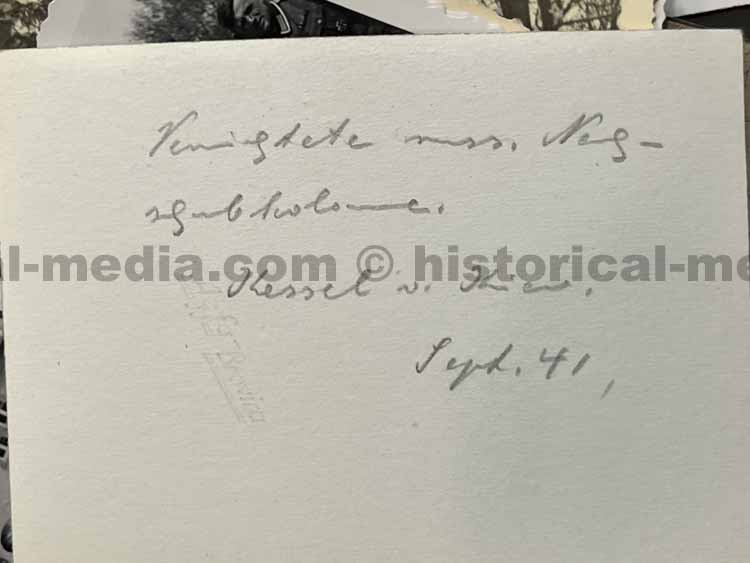 Vernichtete russ. Nach-
schubkolonne.
l-media.com © historical-me
Kessel v. Kiew.
Sept. 41,